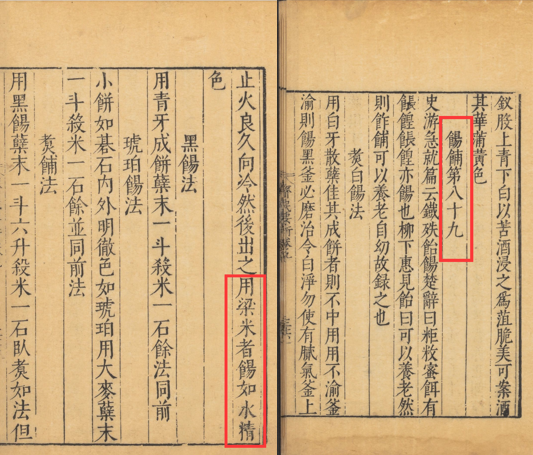 釵股上青下白以苦酒浸之爲菹脆美可案酒
其華蒲黃色
餳餔第八十九
史游急就篇云鐵殊飴餳楚辭曰粔籹蜜餌有
餦餭餦餭亦餳也柳下惠見飴曰可以養老然
則飴餔可以養老自幼故録之也
煑白餳法
用白牙散糵佳其成餅者則不中用用不渝釜
渝則餳黑釜必磨治令白淨勿使有膩氣釜上
止火良久向冷然後出之用梁米者餳如水精
色
黑餳法
用青牙成餅糵末一斗殺米一石餘法同前
琥珀餳法
小餅如碁石内外明徹色如琥珀用大麥糵末
一斗殺米一石餘並同前法
煑餔法
用黑餳糵末一斗六升殺米一石臥煑如法但